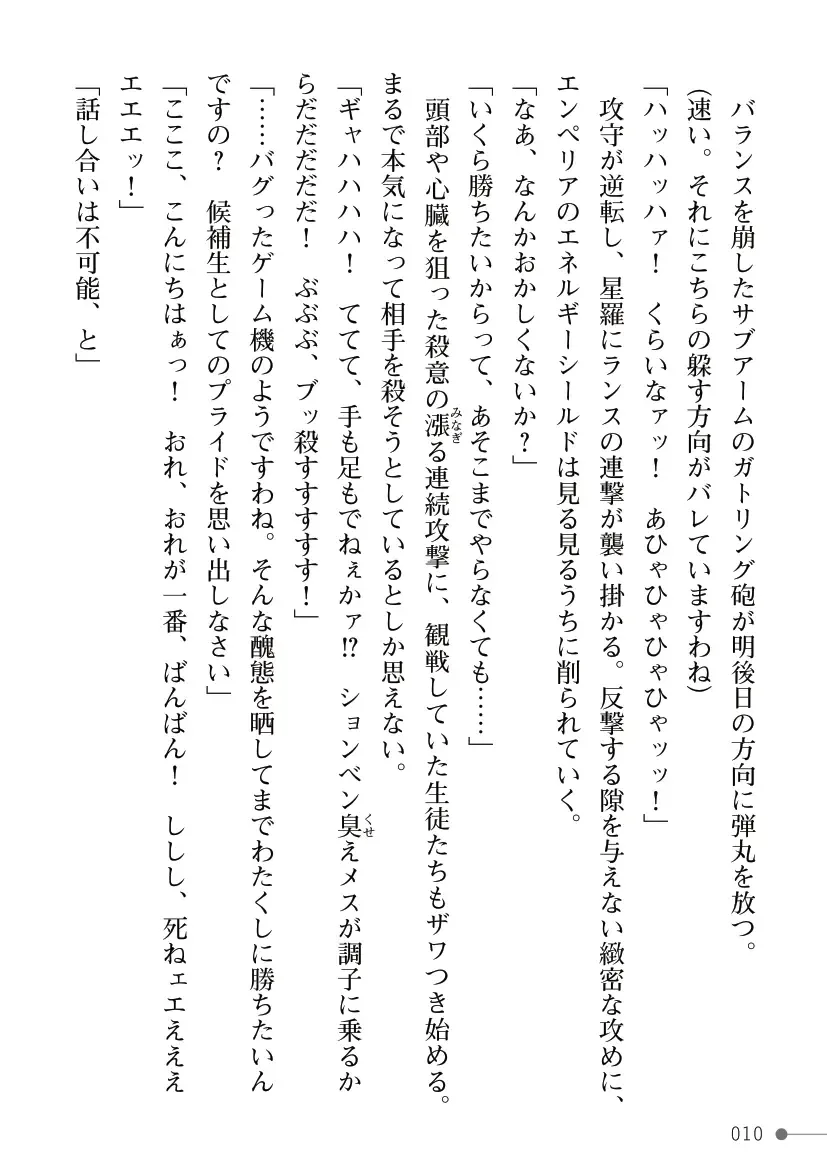 バランスを崩したサブアームのガトリング砲が明後日の方向に弾丸を放つ。
(速い。それにこちらの躱す方向がバレていますわね)
「ハッハッハァ！　くらいなァッ！　あひゃひゃひゃひゃッッ！」
攻守が逆転し、星羅にランスの連撃が襲い掛かる。反撃する隙を与えない緻密な攻めに、
エンペリアのエネルギーシールドは見る見るうちに削られていく。
「なあ、なんかおかしくないか？」
「いくら勝ちたいからって、あそこまでやらなくても……」
頭部や心臓を狙った殺意の漲る連続攻撃に、観戦していた生徒たちもザワつき始める。
みなぎ
まるで本気になって相手を殺そうとしているとしか思えない。
「ギャハハハハ！　ててて、手も足もでねぇかァ⁉　ションベン臭えメスが調子に乗るか
くせ
らだだだだだ！　ぶぶぶ、ブッ殺すすすすす！」
「……バグったゲーム機のようですわね。そんな醜態を晒してまでわたくしに勝ちたいん
ですの？　候補生としてのプライドを思い出しなさい」
「こここ、こんにちはぁっ！　おれ、おれが一番、ばんばん！　ししし、死ねェエえええ
エエエッ！」
「話し合いは不可能、と」
010